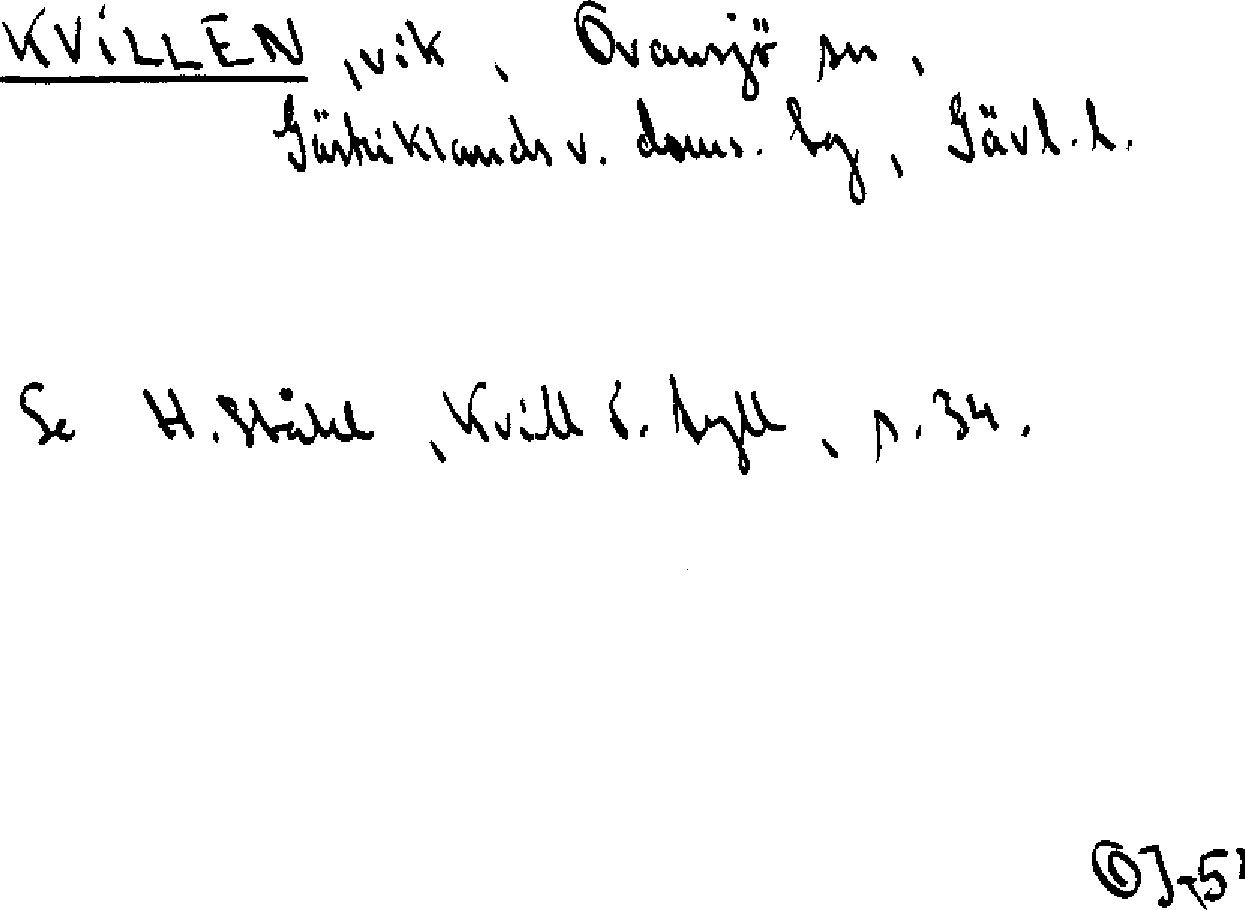 KVILLEN, vik, Ovansjö sn,
Gästriklands v. doms. lg, Gävl. l.
Se H. Ståhl, Kvill o. tyll, s. 34.